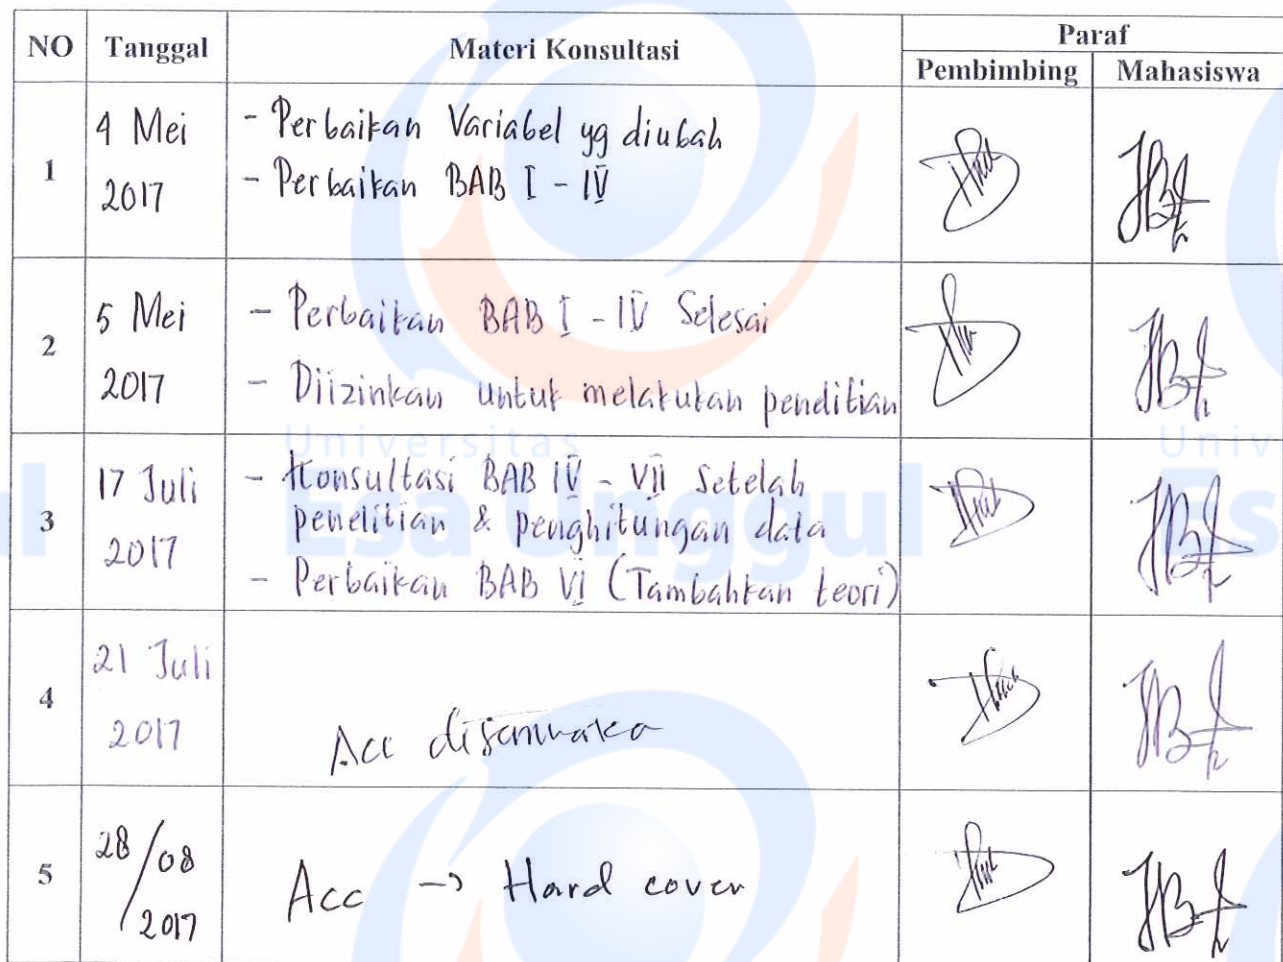 NO Tanggal Materi Konsultasi Paraf
Pembimbing Mahasiswa
1
4 Mei
2017
- Perbaikan Variabel yg diubah
- Perbaikan BAB I - IV
2
5 Mei
2017
- Perbaikan BAB I - IV Selesai
- Diizinkan untuk melakukan penelitian
Universitas
Esa Unggul
3
17 Juli
2017
- Konsultasi BAB IV - VII Setelah
penelitian & penghitungan data
- Perbaikan BAB VI (Tambahkan teori)
4
21 Juli
2017
Acc
5
28/08
2017
Acc -> Hard cover